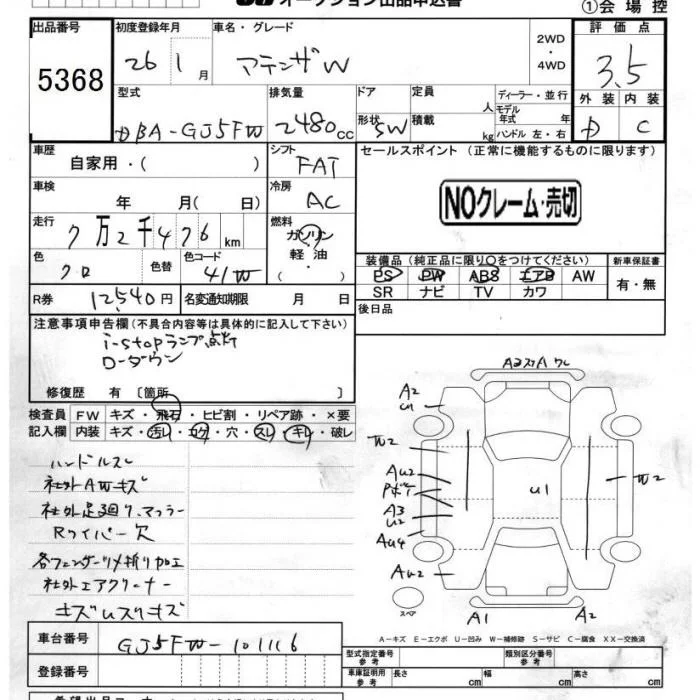 オークション出品申込書
①会場控
出品番号
5368
初度登録年月
26 1 月
車名・グレード
アテンザW
2WD
・
4WD
評価点
3.5
外装 内装
C
型式
DBA-GJ5FW
排気量
2480cc
ドア
形状 SW
定員 人
積載 kg
ディーラー・並行
モデル
年式 年
ハンドル 左・右
車歴
自家用・( )
シフト
FAT
セールスポイント (正常に機能するものに限ります)
NOクレーム・売切
車検
年 月( 日)
冷房
AC
走行
7万2千476km
燃料
ガソリン
・
軽油
・
( )
色
クロ
色替
色コード
41W
装備品(純正品に限り○をつけてください)
PS PW ABS エアB AW
SR ナビ TV カワ
新車保証書
有・無
R券 12,540円
名変通知期限 月 日
後日品
注意事項申告欄(不具合内容等は具体的に記入して下さい)
i-stopランプ点灯
ローダウン
修復歴 有 〔箇所
検査員
記入欄
FW キズ・飛石・ヒビ割・リペア跡・×要
内装 キズ・汚レ・コゲ・穴・スレ・キレ・破レ
ハンドルスレ
社外AWキズ
社外足廻り、マフラー
Rワイパー欠
各フェンダーツメ折り加工
社外エアクリーナー
キズムスリキズ
A3 スリA ワレ
A2
U1
W2
AU2
Pボテ
A3
U2
AU4
AU2
U1
W2
A1
A2
スペア
A－キズ E－エクボ U－凹み W－補修跡 S－サビ C－腐食 XX－交換済
車台番号
GJ5FW-101116
登録番号
型式指定番号
参考
類別区分番号
参考
車庫証明用
参考
長さ cm
幅 cm
高さ cm